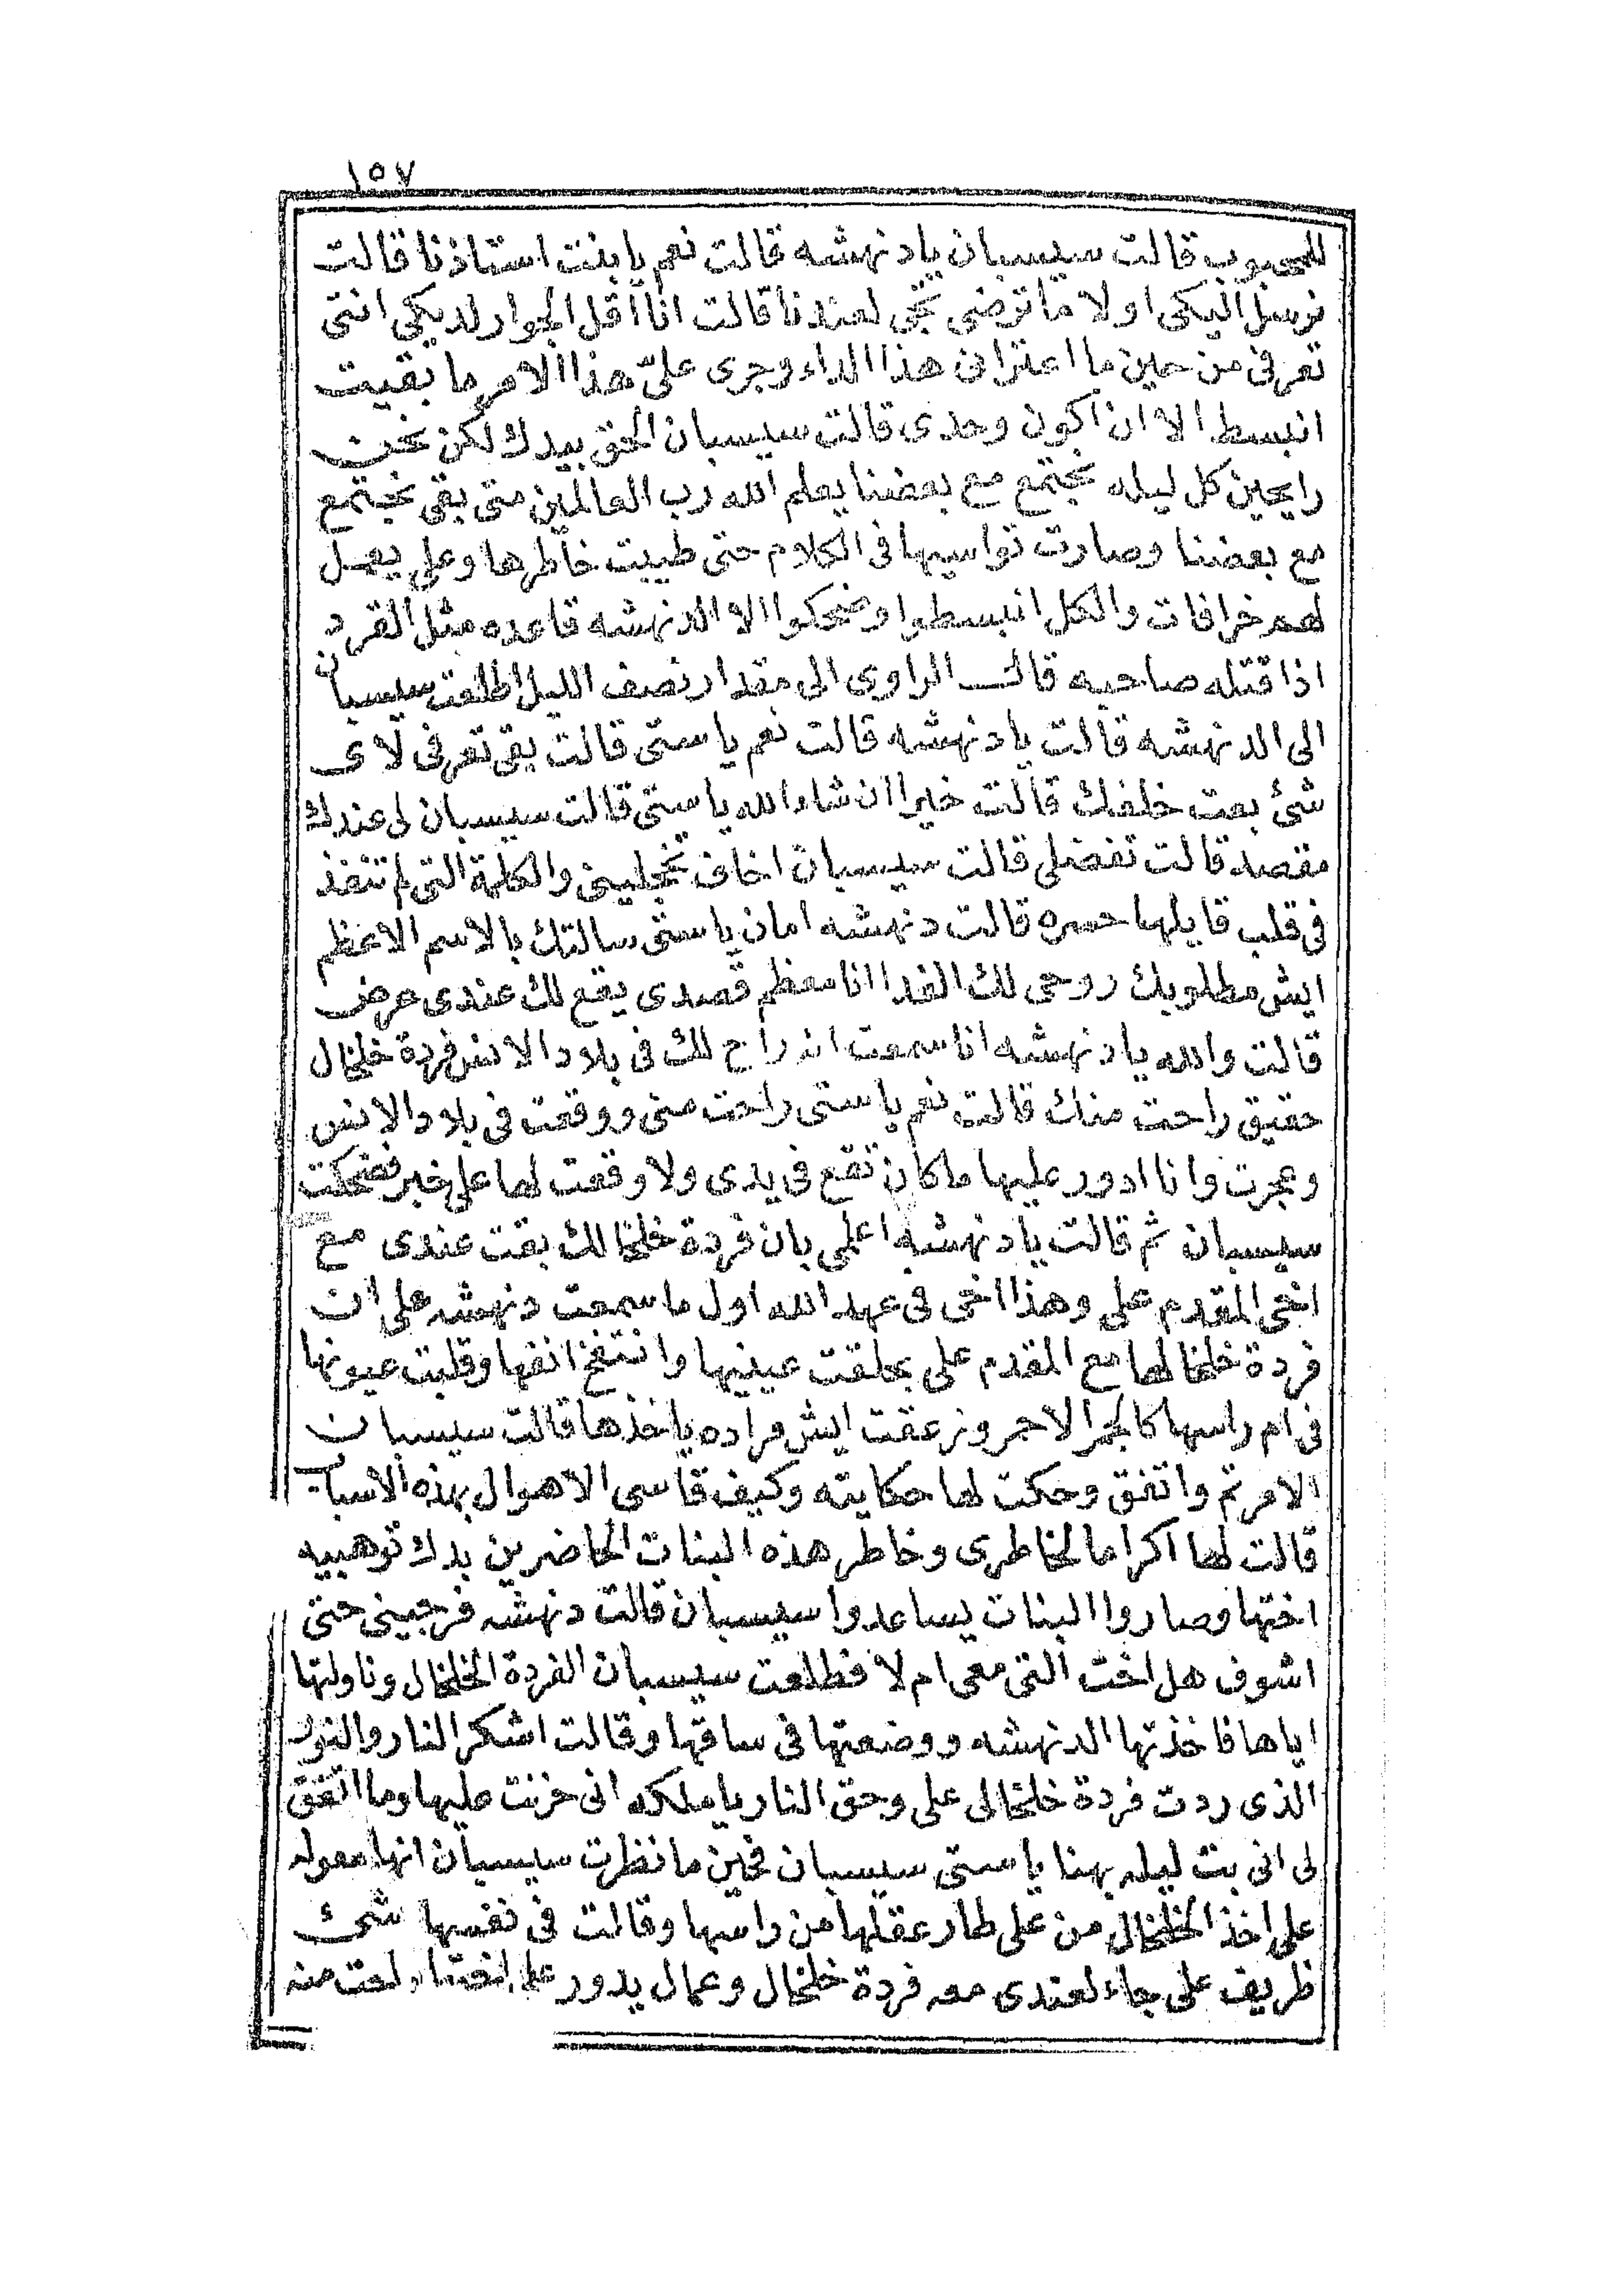 ١٥٧
للمحبوب قالت سيسبان يا دنهشه قالت نعم يا بنت استاذنا قالت
نرسل اليكى اولا ما ترضى تجى لعندنا قالت انا اقل الجوار لديكى انتى
تعرفى من حين ما اعترانى هذا الداء وجرى علىّ هذا الامر ما بقيت
انبسط الا ان اكون وحدى قالت سيسبان الحق بيدك لكن نحن
رايحين كل ليله نجتمع مع بعضنا يعلم الله رب العالمين متى بقى نجتمع
مع بعضنا وصارت تواسيها فى الكلام حتى طيبت خاطرها وعلى يعمل
لهم خرافات والكل انبسطوا وضحكوا الا الدنهشه قاعده مثل القرد
اذا قتله صاحبه قال الراوى الى مقدار نصف الليل اطلعت سيسبان
الى الدنهشه قالت يا دنهشه قالت نعم يا ستى قالت بقى تعرفى لاى
شئ بعت خلفك قالت خيرا ان شاء الله يا ستى قالت سيسبان لى عندك
مقصد قالت تفضلى قالت سيسبان اخاف تخجلينى والكلمة التى لم تنفذ
فى قلب قايلها حسره قالت دنهشه امان يا ستى سالتك بالاسم الاعظم
ايش مطلوبك روحى لك الفدا انا معظم قصدى يقع لك عندى عرض
قالت والله يا دنهشه انا سمعت انه راح لك فى بلاد الانس فردة خلخال
حقيق راحت منك قالت نعم يا ستى راحت منى ووقعت فى بلاد الانس
وعجزت وانا ادور عليها ما كان تقع فى يدى ولا وقعت لها على خبر فضحكت
سيسبان ثم قالت يا دنهشه اعلمى بان فردة خلخالك بقت عندى مع
اخى المقدم على وهذا اخى فى عهد الله اول ما سمعت دنهشه على ان
فردة خلخالها مع المقدم على بحلقت عينيها وانتفخ انفها وقلبت عيونها
فى ام راسها كالجمر الاحمر وزعقت ايش مراده ياخذها قالت سيسبان
الامر تم واتفق وحكت لها حكايته وكيف قاسى الاهوال بهذه الاسباب
قالت لها اكراما لخاطرى وخاطر هذه البنات الحاضرين بدك توهبيه
اختها وصاروا البنات يساعدوا سيسبان قالت دنهشه فرجينى حتى
اشوف هل اخت التى معى ام لا فطلعت سيسبان الفردة الخلخال وناولتها
اياها فاخذتها الدنهشه ووضعتها فى ساقها وقالت اشكر النار والنور
الذى ردت فردة خلخالى على وحق النار يا ملكه انى حزنت عليها وما اتفق
لى انى بت ليله بهنا يا ستى سيسبان فحين ما نظرت سيسبان انها معوله
على اخذ الخلخال من على طار عقلها من راسها وقالت فى نفسها شئ
ظريف على جاء لعندى معه فردة خلخال وعمال يدور على اختها منه